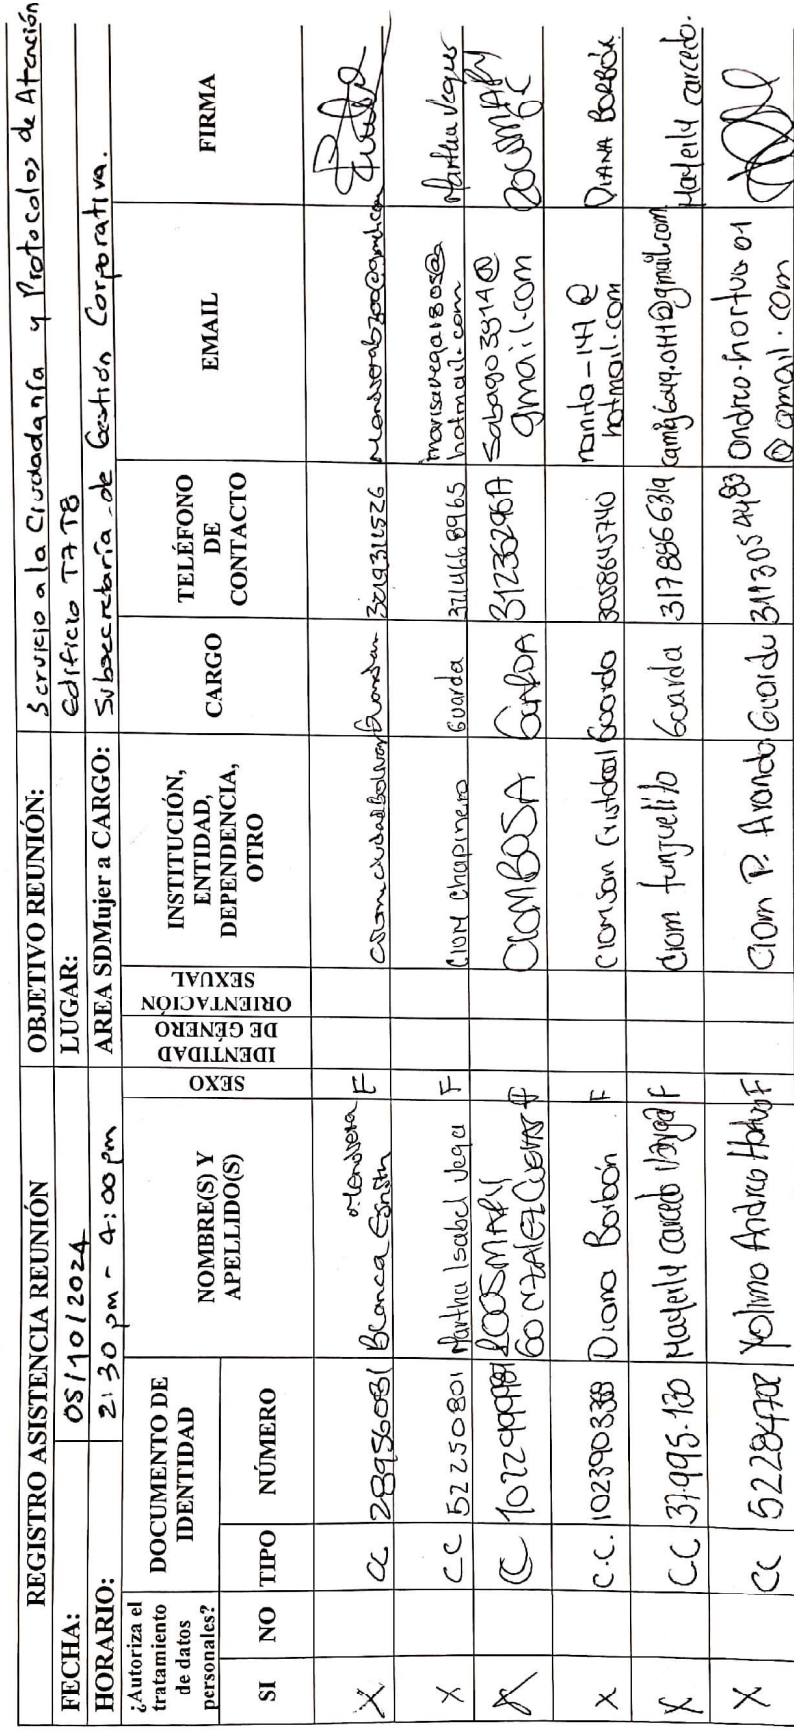 REGISTRO ASISTENCIA REUNIÓN
OBJETIVO REUNIÓN: Servicio a la Ciudadanía y Protocolos de Atención
FECHA: 05/10/2024
LUGAR: Edificio T7 T8
HORARIO: 2:30 pm - 4:00 pm
AREA SDMujer a CARGO: Subsecretaría de Gestión Corporativa.
¿Autoriza el tratamiento de datos personales?
SI NO
DOCUMENTO DE IDENTIDAD
TIPO NÚMERO
NOMBRE(S) Y APELLIDO(S)
SEXO
IDENTIDAD DE GÉNERO
ORIENTACIÓN SEXUAL
INSTITUCIÓN, ENTIDAD, DEPENDENCIA, OTRO
CARGO
TELÉFONO DE CONTACTO
EMAIL
FIRMA
X CC 28956081 Blanca F 3219311526
X CC 52250801 Martha Isabel Vega F Ciom Chapinero Guarda 3214668965 marisavega1805@hotmail.com Martha Vega
X CC ROOSMARY GONZALEZ CUERVAS F CIOMBOSA GUARDA sabago3314@gmail.com
X C.C. 1023903388 Diana Borbón F Ciom San Cristobal Guarda 3058645740 nanita-147@hotmail.com DIANA BORBÓN
X CC 37.995.130 Mayerly Carcedo F Ciom tunjuelito Guarda 3178866319 Mayerly Carcedo.
X CC 52284702 F Ciom P. Aranda Guarda 3113054483 @gmail.com